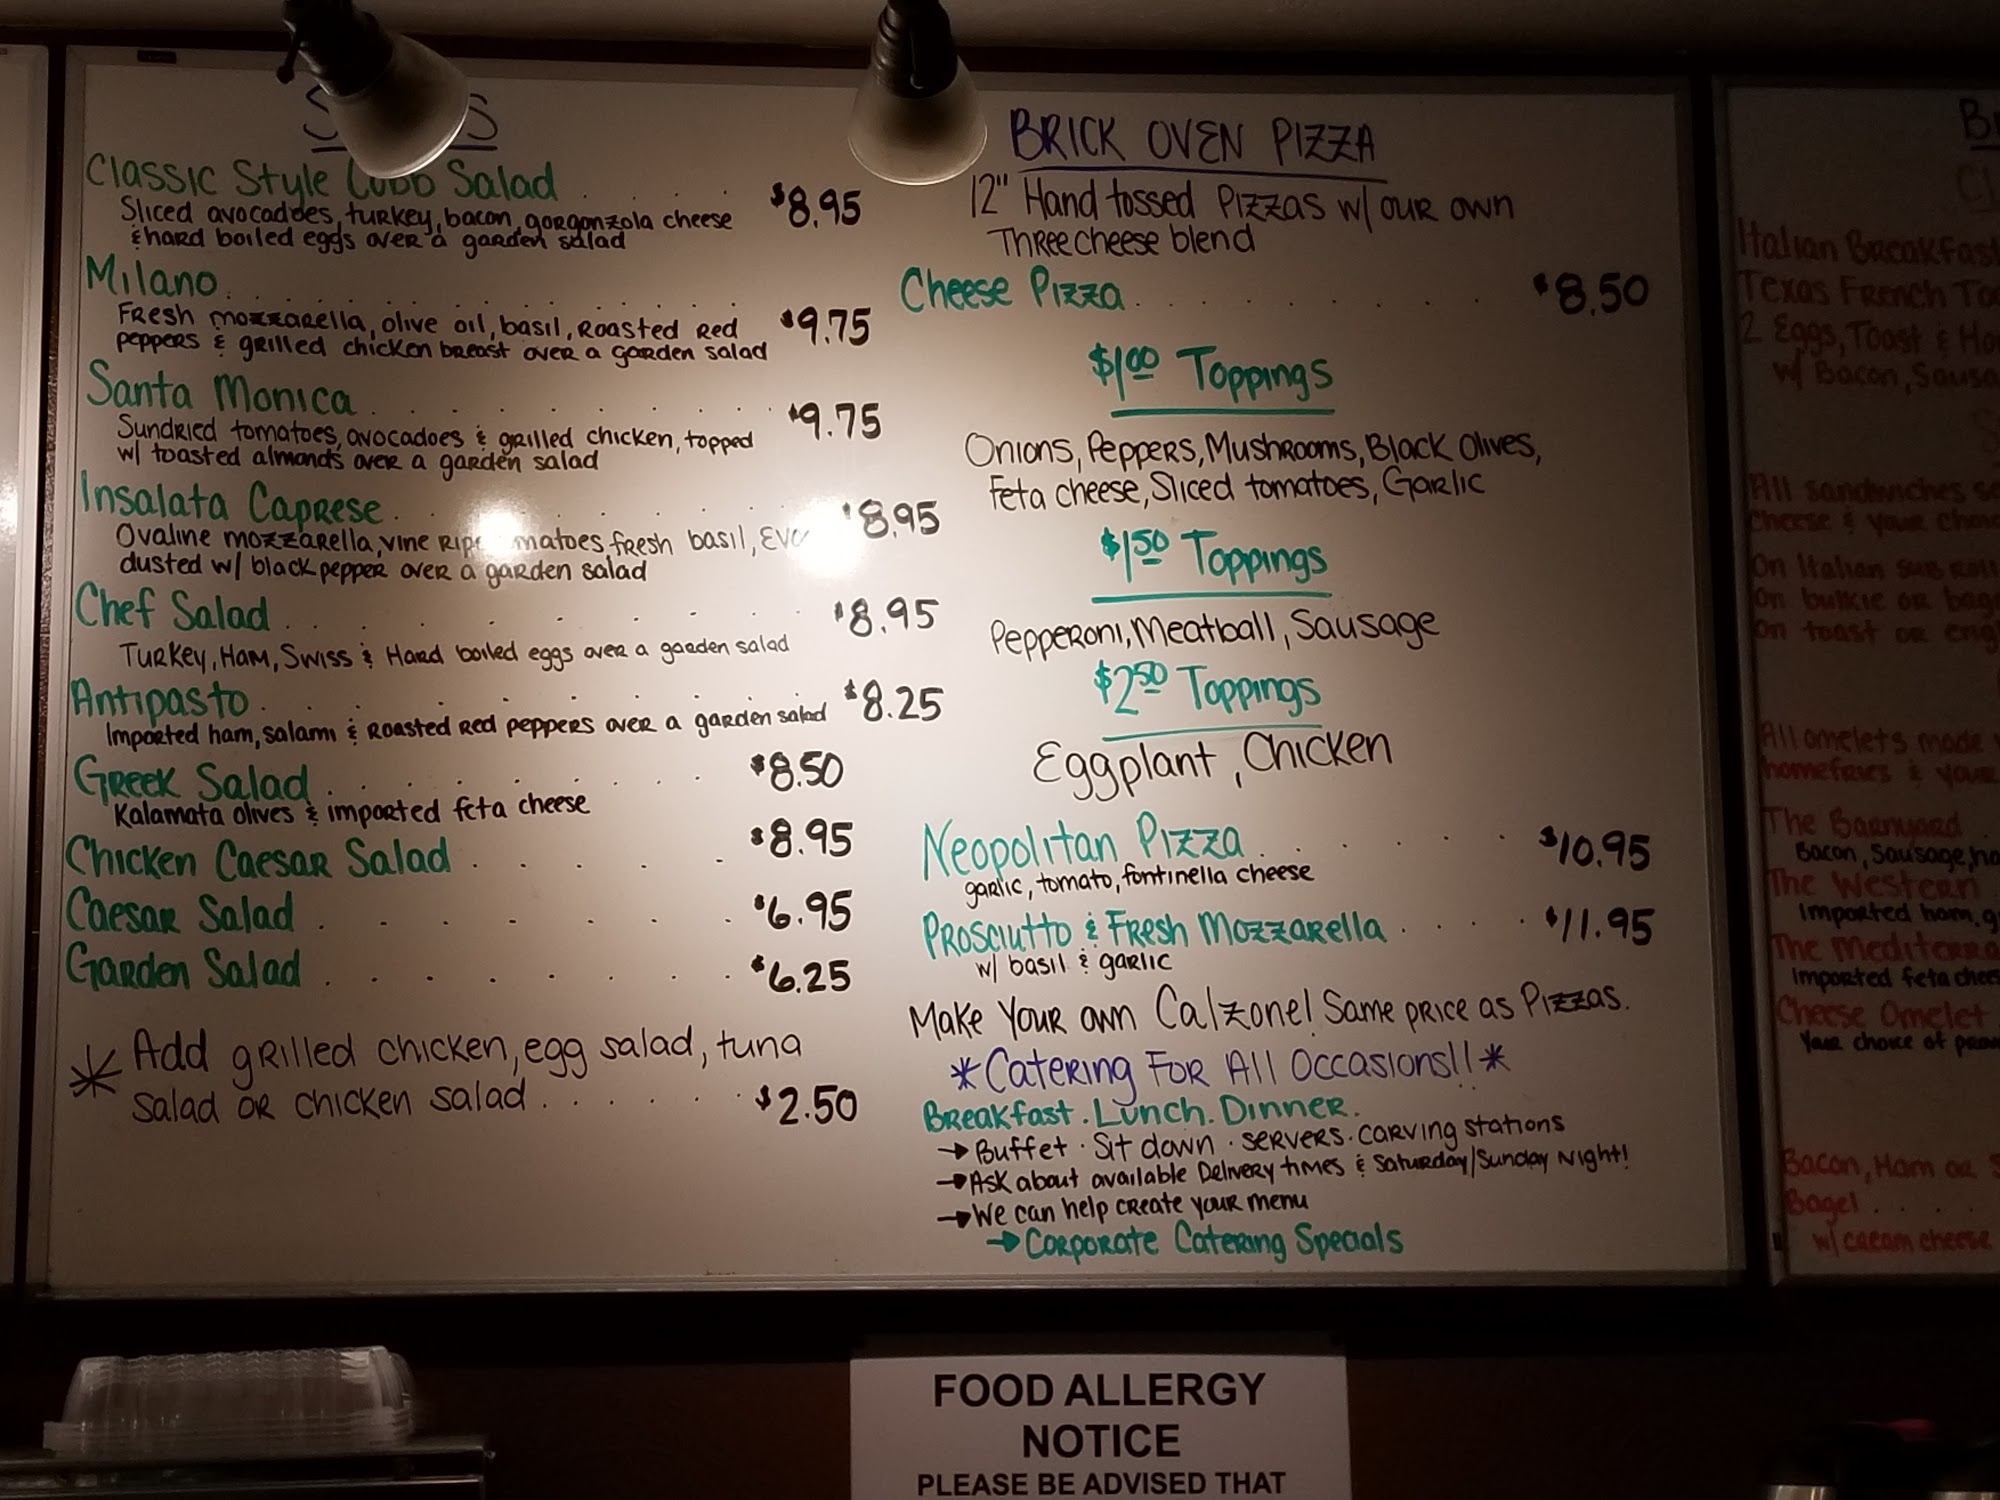 Classic Style Cobb Salad . . . . $8.95
Sliced avocadoes, turkey, bacon, gorgonzola cheese
& hard boiled eggs over a garden salad
Milano . . . . . . . . $9.75
Fresh mozzarella, olive oil, basil, Roasted Red
peppers & grilled chicken breast over a garden salad
Santa Monica . . . . . . . $9.75
Sundried tomatoes, avocadoes & grilled chicken, topped
w/ toasted almonds over a garden salad
Insalata Caprese . . . . . $8.95
Ovaline mozzarella, vine fresh basil,
dusted w/ black pepper over a garden salad
Chef Salad . . . . . . . $8.95
Turkey, Ham, Swiss & Hard boiled eggs over a garden salad
Antipasto . . . . . . . . $8.25
Imported ham, salami & Roasted Red peppers over a garden salad
Greek Salad . . . . . . . $8.50
Kalamata olives & imported feta cheese
Chicken Caesar Salad . . . . . $8.95
Caesar Salad . . . . . . . $6.95
Garden Salad . . . . . . . $6.25
* Add grilled chicken, egg salad, tuna
salad or chicken salad . . . . . . $2.50
Brick Oven Pizza
12" Hand tossed Pizzas w/ our own
Three cheese blend
Cheese Pizza . . . . . . . . . $8.50
$1.00 Toppings
Onions, Peppers, Mushrooms, Black Olives,
Feta cheese, Sliced tomatoes, Garlic
$1.50 Toppings
Pepperoni, Meatball, Sausage
$2.50 Toppings
Eggplant, Chicken
Neopolitan Pizza . . . . . . $10.95
garlic, tomato, fontinella cheese
Prosciutto & Fresh Mozzarella . . . . $11.95
w/ basil & garlic
Make Your own Calzone! Same price as Pizzas.
*Catering For All Occasions!!*
Breakfast . Lunch . Dinner.
→ Buffet · Sit down · servers · carving stations
→ Ask about available Delivery times & Saturday/Sunday Night!
→ We can help create your menu
→ Corporate Catering Specials
Italian Breakfast
Texas French
2 Eggs, Toast &
w/ Bacon,
All sandwiches
cheese & your
On Italian sub
on bulkie or
on toast or
All omelets made
homefries & your
The Barnyard
Bacon, Sausage,
The Western
Imported ham,
The
Imported feta
Cheese Omelet
Your choice of
Bacon, Ham or
Bagel . . . .
w/ cream cheese
FOOD ALLERGY
NOTICE
PLEASE BE ADVISED THAT